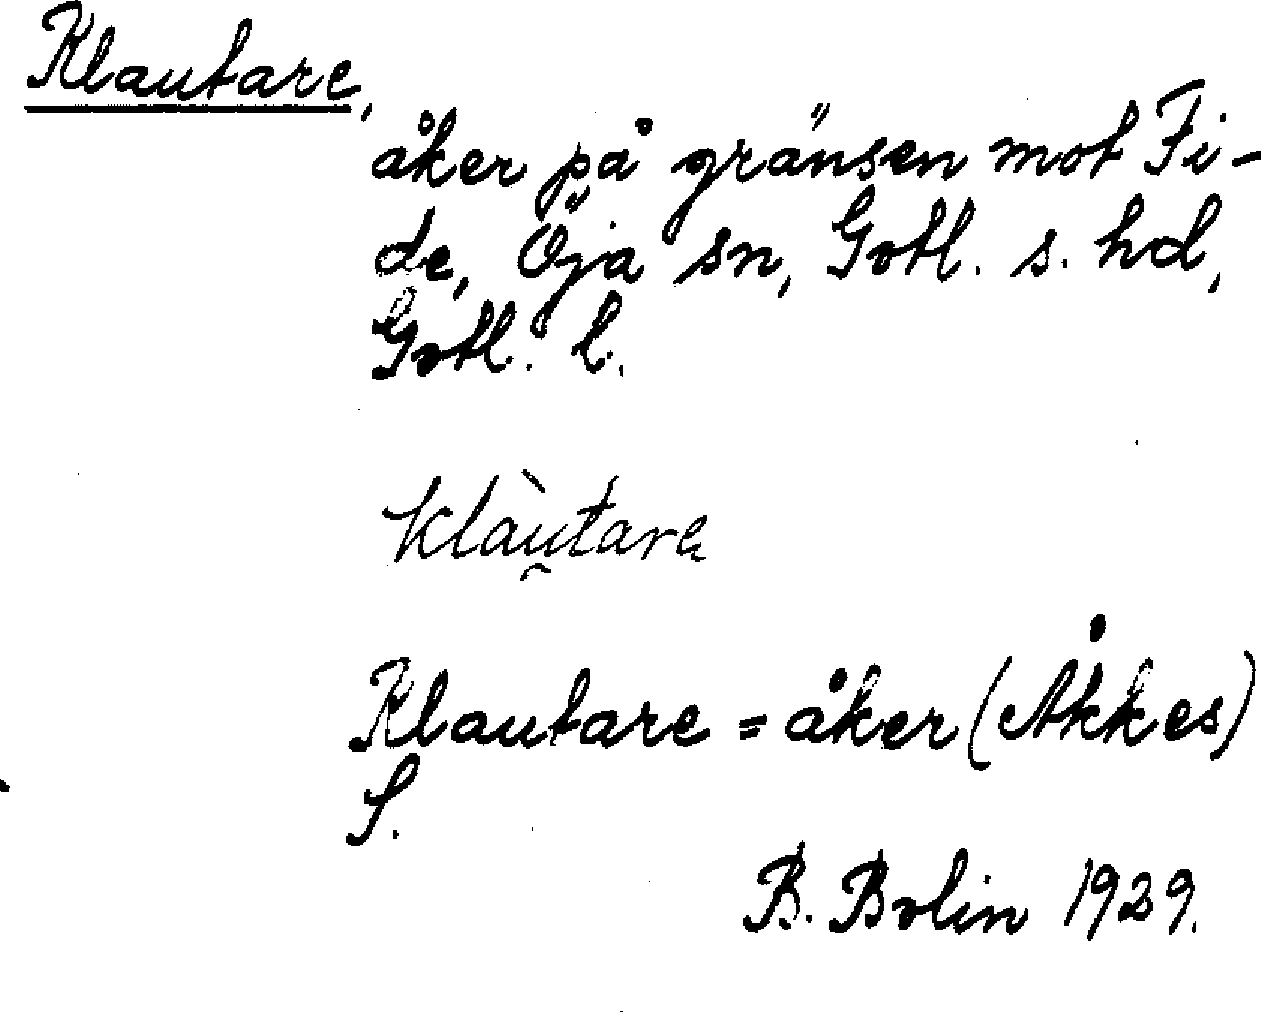 Klautare,
åker på gränsen mot Fi-
de, Öja sn, Gotl. s. hd,
Gotl. l.
klàu̯tara
Klautare = åker (Åkkes)
S.
B. Bolin 1929.